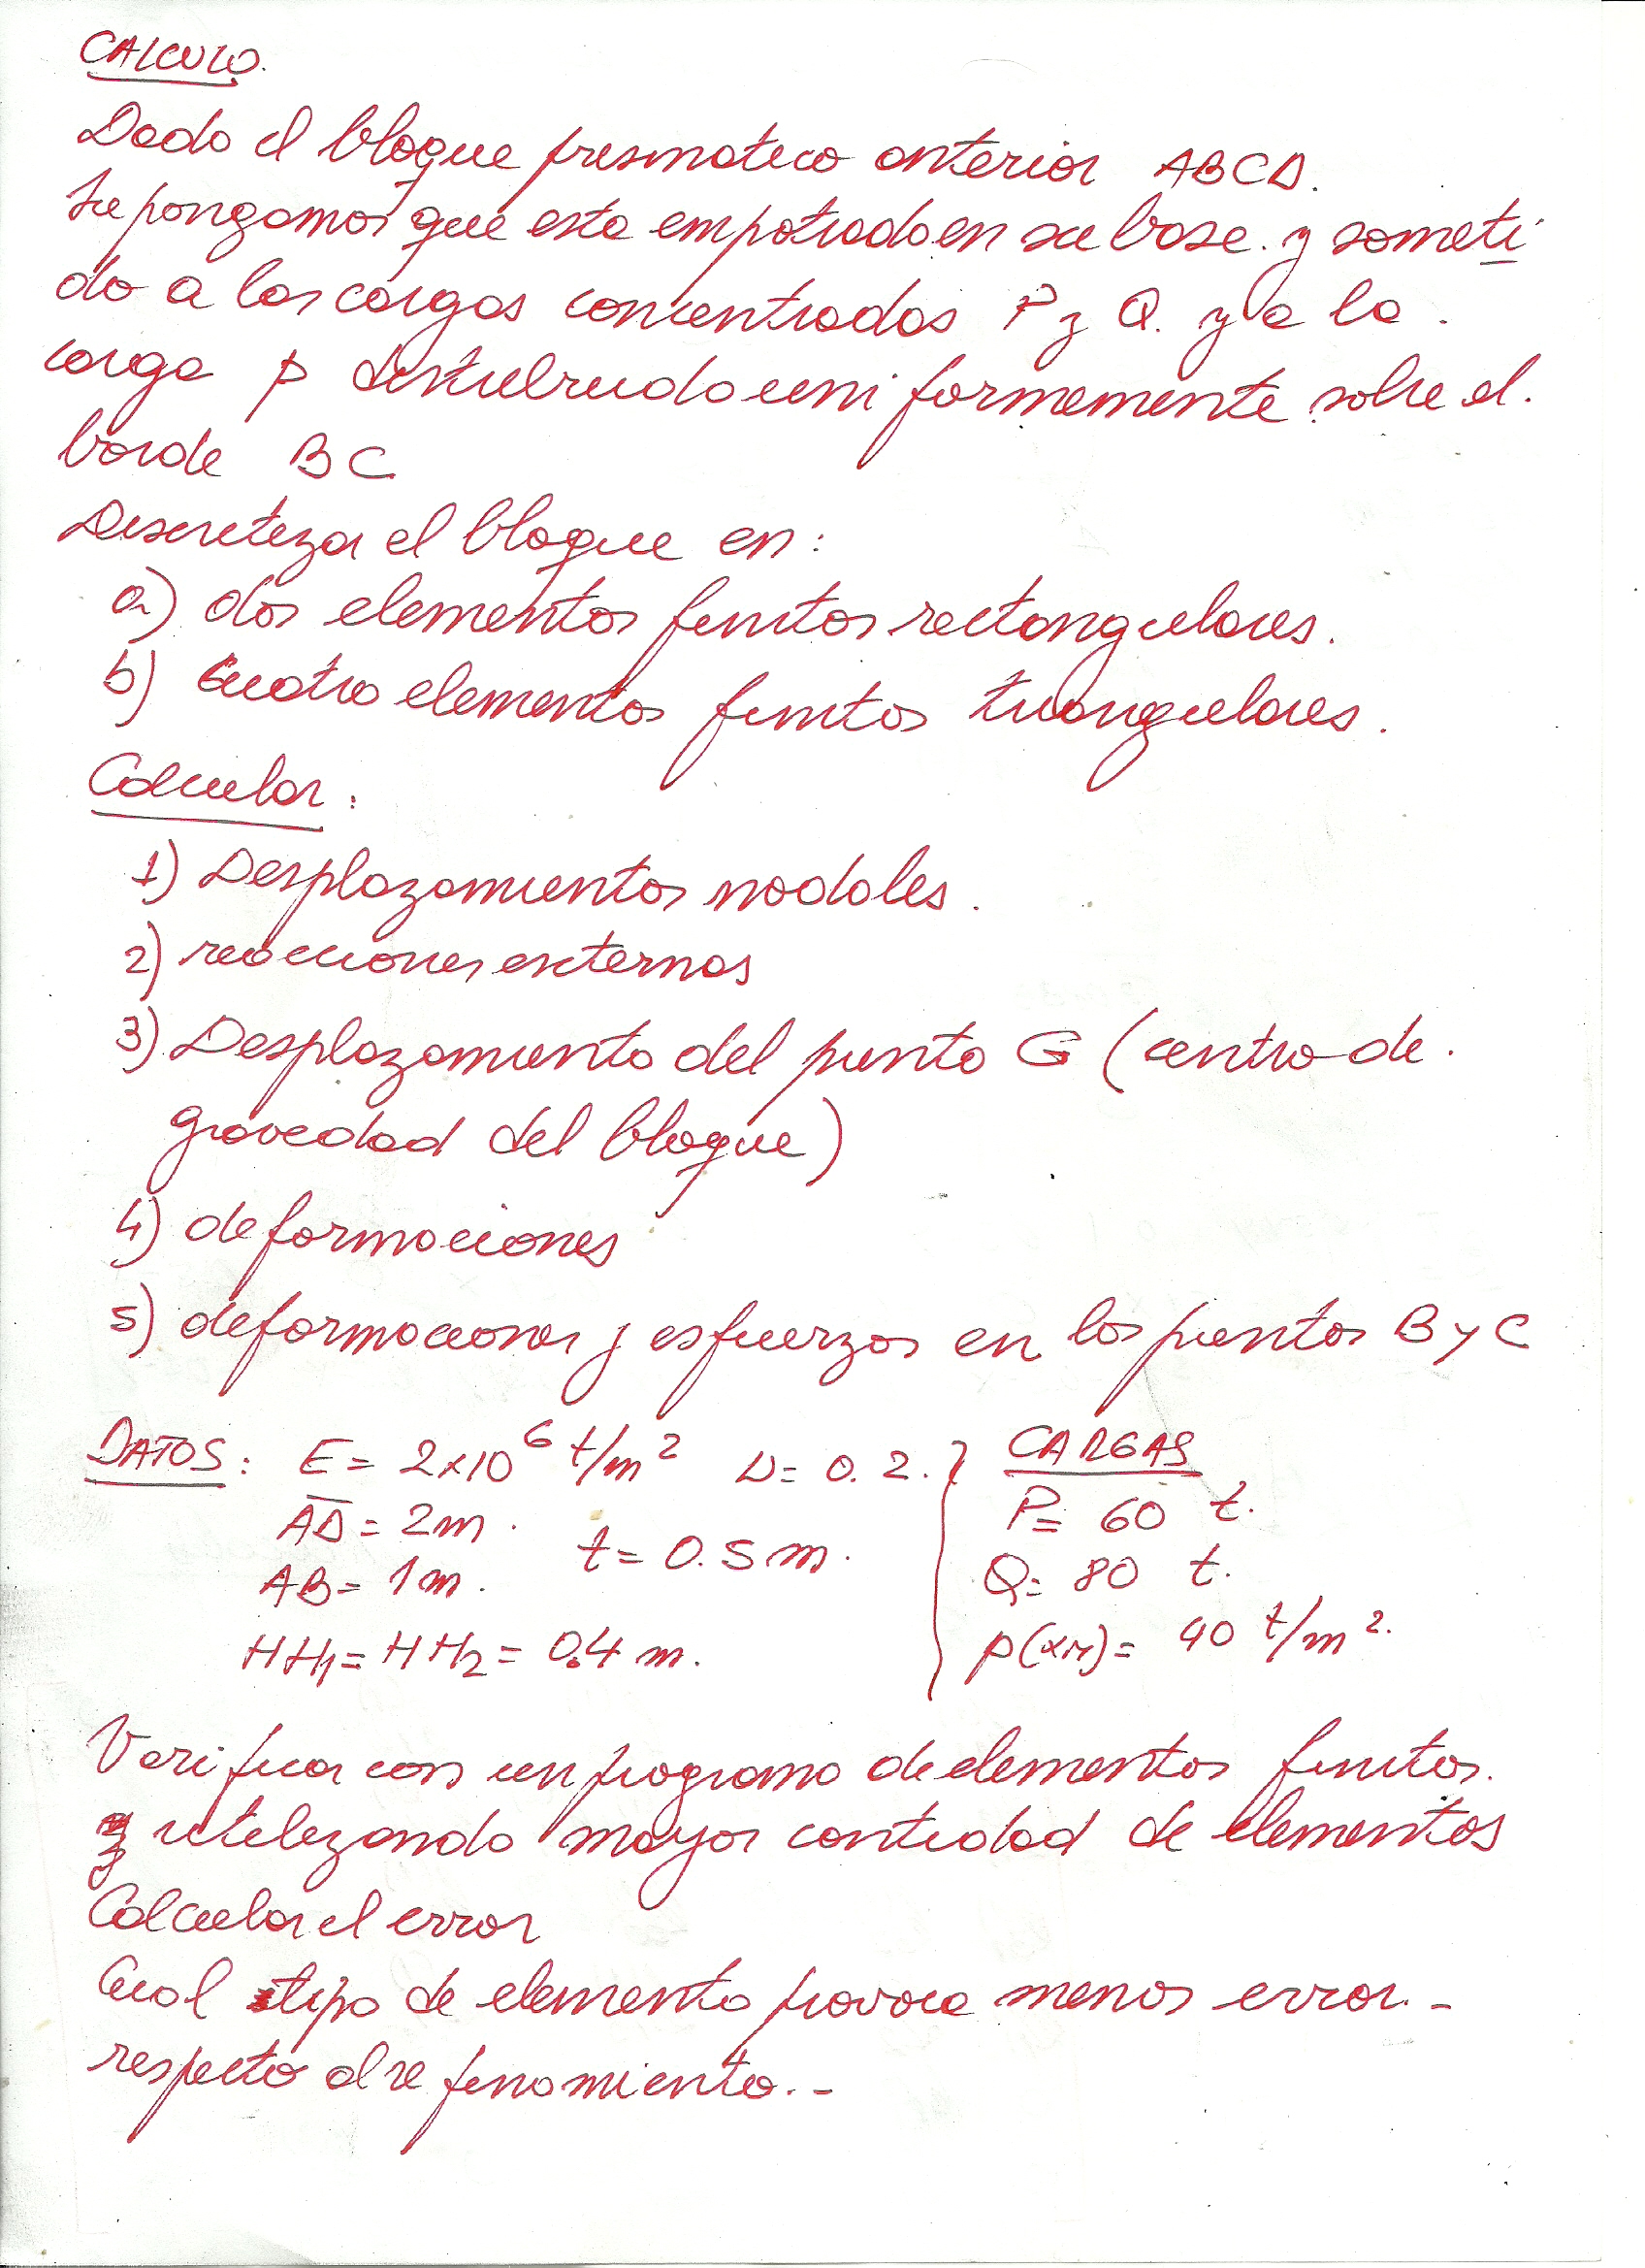 CALCULO.
Dado el bloque prismatico anterior ABCD.
Supongamos que esta empotrado en su base. y someti
do a las cargas concentradas P y Q. y a la.
carga p distribuida uniformemente sobre el.
borde BC
Discretizar el bloque en:
a) dos elementos finitos rectangulares.
b) Cuatro elementos finitos triangulares.
Calcular:
1) Desplazamientos nodales.
2) reacciones externas
3) Desplazamiento del punto G (centro de.
gravedad del bloque)
4) deformaciones
5) deformaciones y esfuerzos en los puntos B y C
DATOS: E = 2x10⁶ t/m² ν= 0.2. } CARGAS
AD = 2m. P= 60 t.
t= 0.5m.
AB= 1m. Q= 80 t.
HH₁= HH₂= 0.4 m. = 40 t/m².
Verificar con un programa de elementos finitos.
y utilizando mayor cantidad de elementos
Calcular el error
Cual tipo de elemento provoca menos error.-
respecto al refinamiento.-